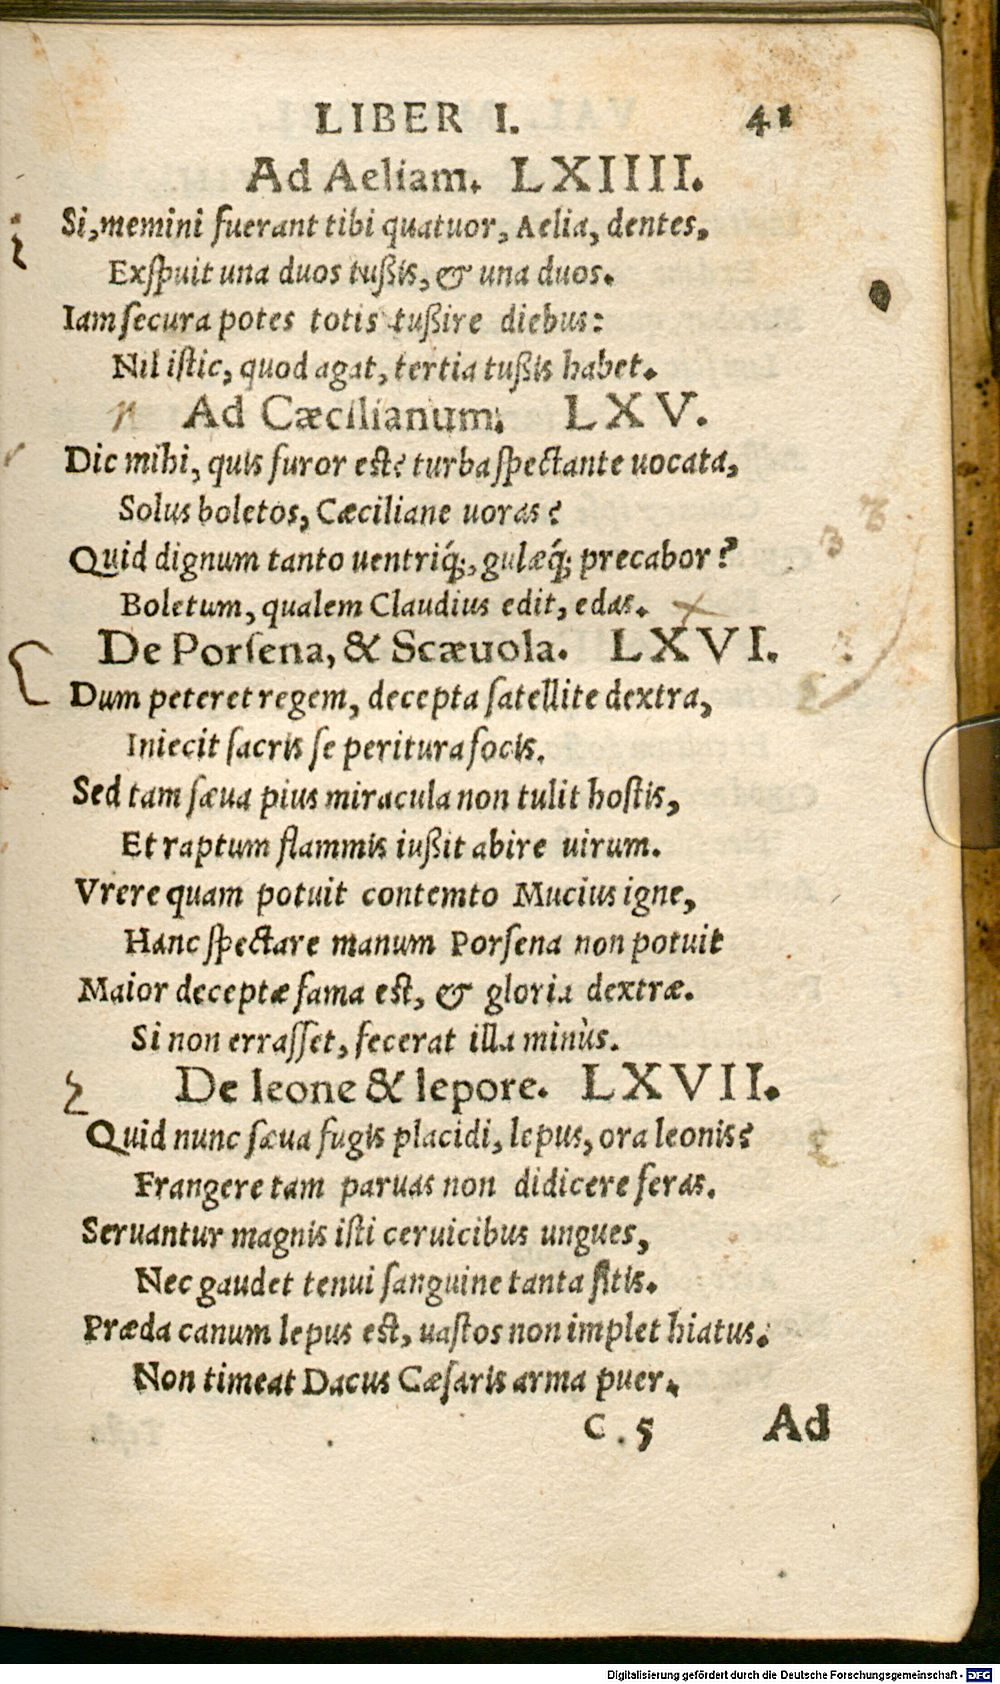 LIBER I. 41
Ad Aeliam. LXIIII.
Si, memini fuerant tibi quatuor, Aelia, dentes,
Exſpuit una duos tußis, & una duos.
Iam ſecura potes totis tußire diebus:
Nil iſtic, quod agat, tertia tußis habet.
Ad Cæcilianum. LXV.
Dic mihi, quis furor est? turba ſpectante uocata,
Solus boletos, Cæciliane uoras?
Quid dignum tanto uentriq́;, gulæq́; precabor?
Boletum, qualem Claudius edit, edas.
De Porſena, & Scæuola. LXVI.
Dum peteret regem, decepta ſatellite dextra,
Iniecit ſacris ſe peritura focis.
Sed tam ſæua pius miracula non tulit hoſtis,
Et raptum flammis iußit abire uirum.
Vrere quam potuit contemto Mucius igne,
Hanc ſpectare manum Porſena non potuit
Maior deceptæ fama est, & gloria dextræ.
Si non erraſſet, fecerat illa minùs.
De leone & lepore. LXVII.
Quid nunc ſæua fugis placidi, lepus, ora leonis?
Frangere tam paruas non didicere feras.
Seruantur magnis iſti ceruicibus ungues,
Nec gaudet tenui ſanguine tanta ſitis.
Præda canum lepus est, uaſtos non implet hiatus.
Non timeat Dacus Cæſaris arma puer.
C. 5 Ad
Digitalisierung gefördert durch die Deutsche Forschungsgemeinschaft - DFG